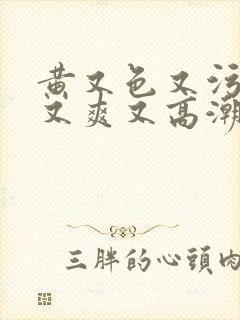 黄又色又污
又爽又高潮
三胖的心頭肉